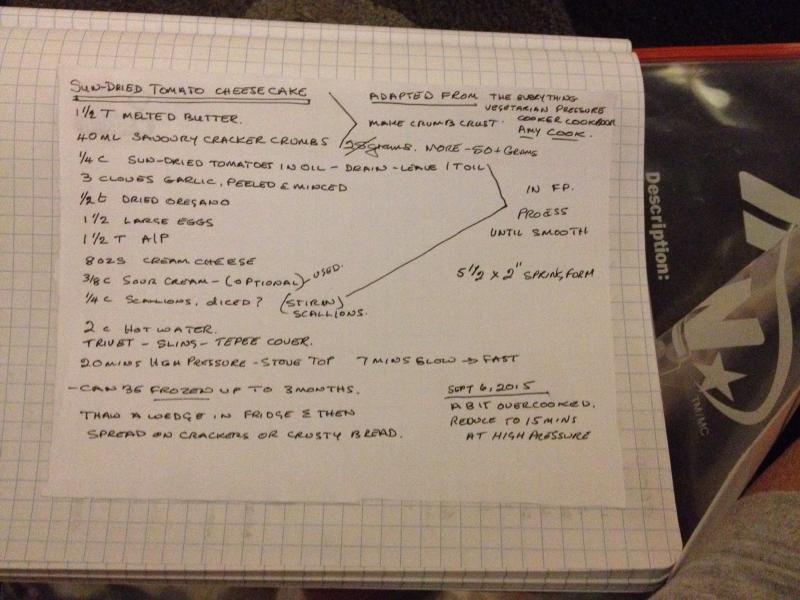 SUN-DRIED TOMATO CHEESECAKE
ADAPTED FROM THE EVERYTHING
VEGETARIAN PRESSURE
COOKER COOKBOOK
AMY COOK.
1 1/2 T MELTED BUTTER.
MAKE CRUMB CRUST.
40 ML SAVOURY CRACKER CRUMBS / 28 grams. MORE - 50+ Grams
1/4 C SUN-DRIED TOMATOES IN OIL - DRAIN - LEAVE 1 T OIL
3 CLOVES GARLIC, PEELED & MINCED
1/2 t DRIED OREGANO
1 1/2 LARGE EGGS
1 1/2 T A/P
8 OZS CREAM CHEESE
3/8 C SOUR CREAM - (OPTIONAL) USED.
1/4 C SCALLIONS, DICED? (STIR IN)
SCALLIONS.
IN F.P.
PROCESS
UNTIL SMOOTH
5 1/2 x 2" SPRINGFORM
2 C HOT WATER.
TRIVET - SLING - TEPEE COVER.
20 MINS HIGH PRESSURE - STOVE TOP 7 MINS SLOW → FAST
- CAN BE FROZEN UP TO 3 MONTHS.
THAW A WEDGE IN FRIDGE & THEN
SPREAD ON CRACKERS OR CRUSTY BREAD.
SEPT 6, 2015
A BIT OVERCOOKED.
REDUCE TO 15 MINS
AT HIGH PRESSURE
Description:
TM/MC